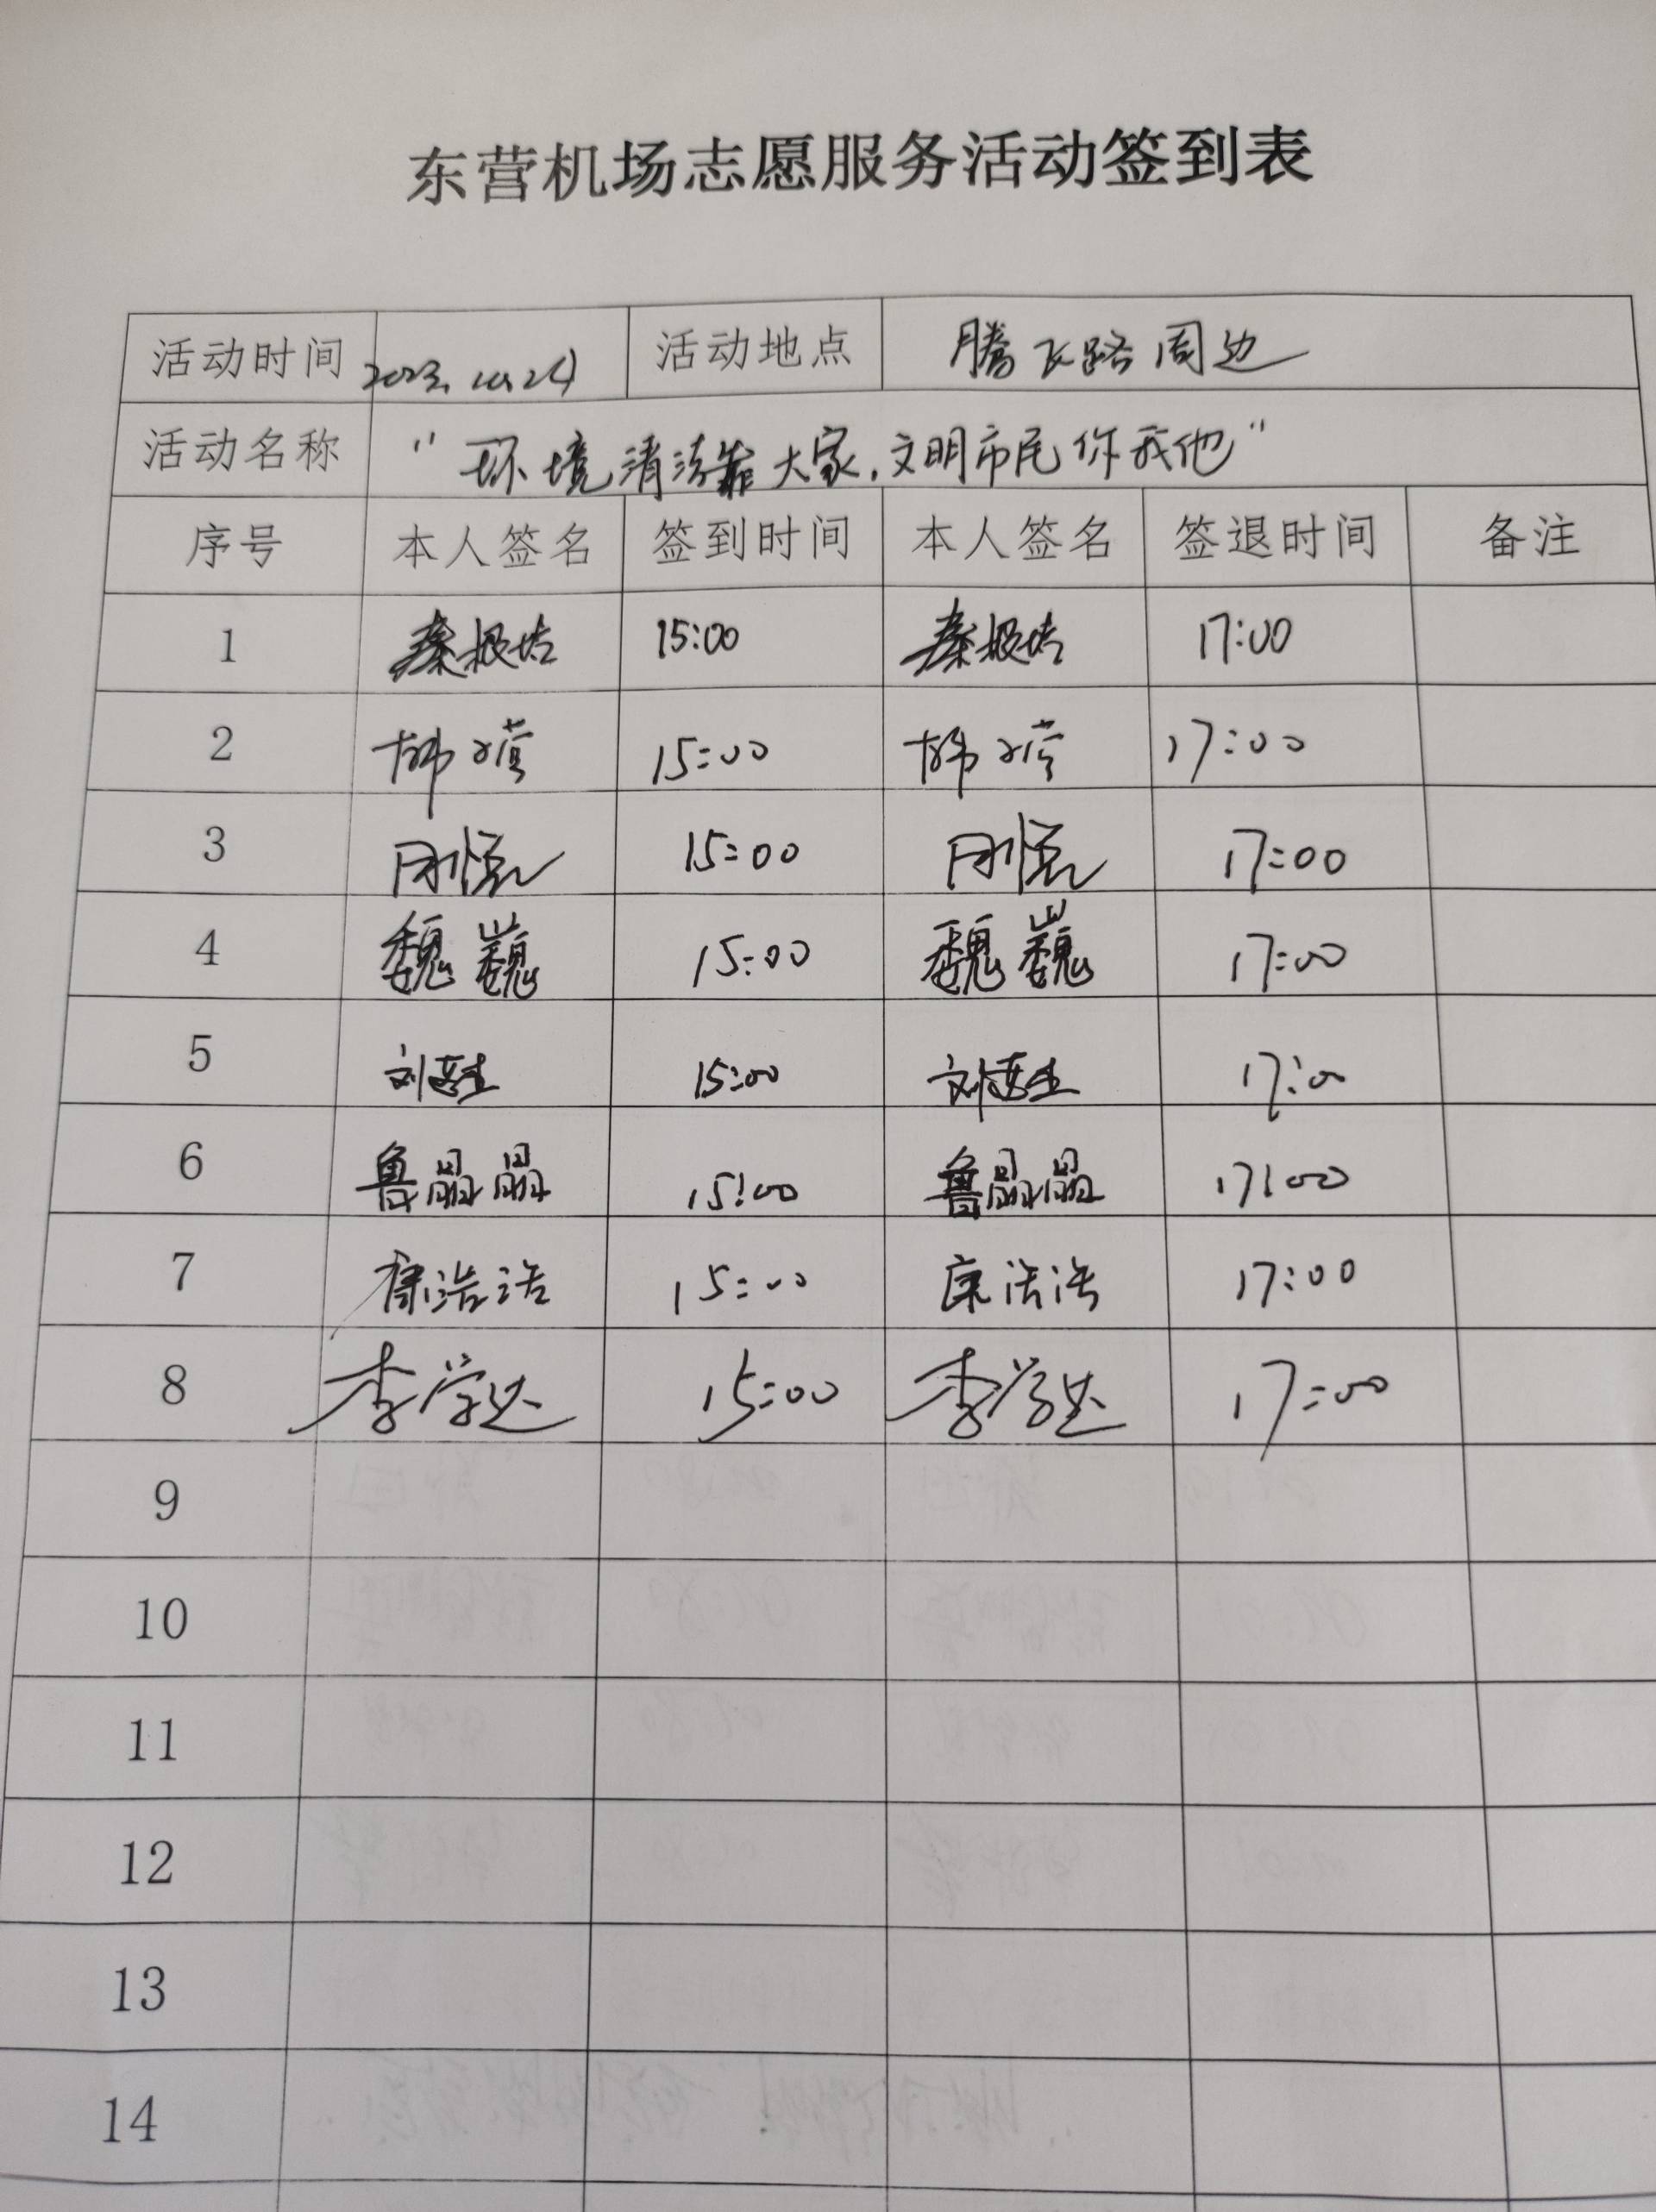 东营机场志愿服务活动签到表
活动时间 2023.10.24 活动地点 腾飞路周边
活动名称 "环境清洁靠大家,文明市民你我他"
序号 本人签名 签到时间 本人签名 签退时间 备注
1 秦 15:00 秦 17:00
2 15:00 17:00
3 周悦 15:00 周悦 17:00
4 魏巍 15:00 魏巍 17:00
5 刘 15:00 刘 17:00
6 鲁晶晶 15:00 鲁晶晶 17:00
7 康浩浩 15:00 康浩浩 17:00
8 李学达 15:00 李学达 17:00
9
10
11
12
13
14